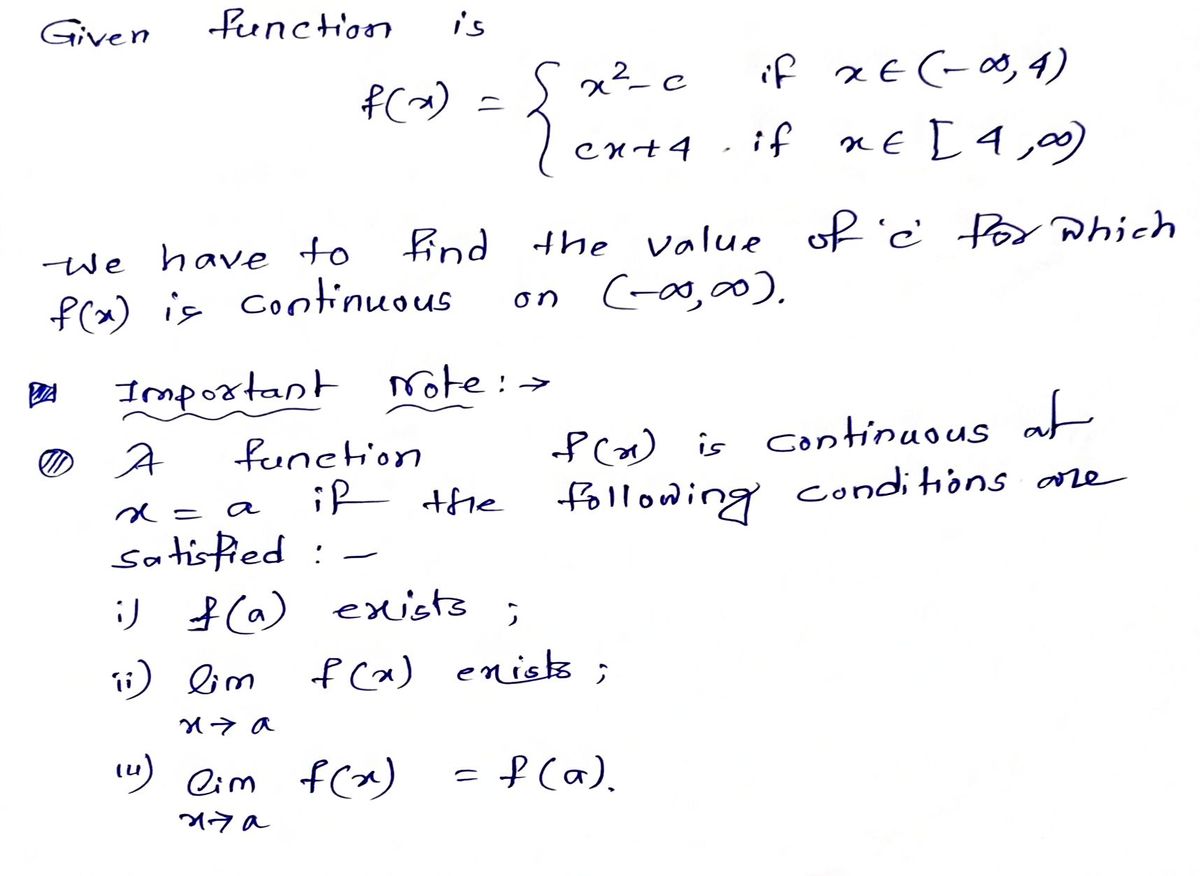 Given function is
f(x) = { x² - c if x ∈ (-∞, 4)
cx+4 . if x ∈ [4, ∞)
We have to find the value of 'c' for which
f(x) is continuous on (-∞, ∞).
Important Note : →
A function f(x) is continuous at
x = a if the following conditions are
satisfied : -
i) f(a) exists ;
ii) lim f(x) exists ;
x → a
iii) lim f(x) = f(a).
x → a